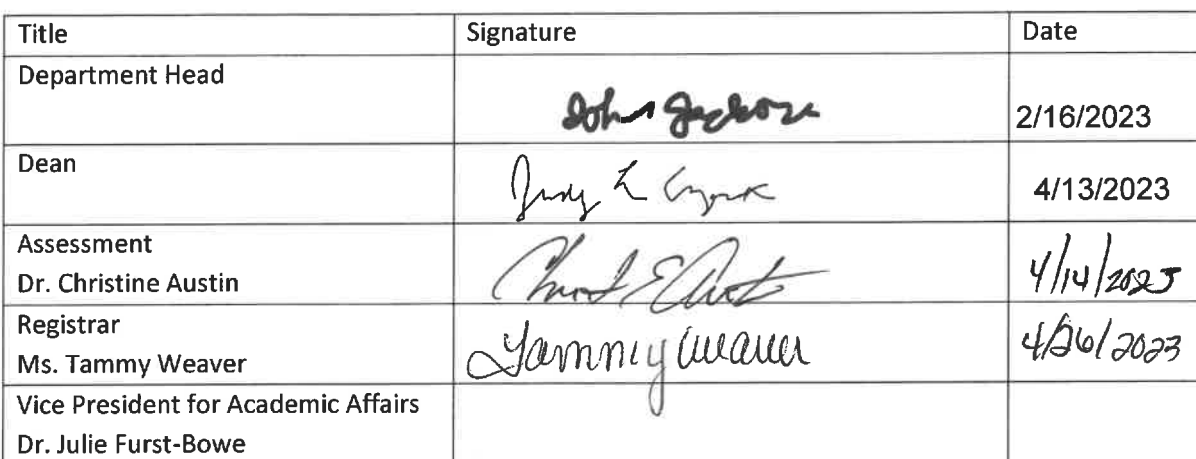 Title Signature Date
Department Head
John Jackson 2/16/2023
Dean
Judy L 4/13/2023
Assessment
Dr. Christine Austin
4/14/2023
Registrar
Ms. Tammy Weaver
Tammy Weaver 4/26/2023
Vice President for Academic Affairs
Dr. Julie Furst-Bowe